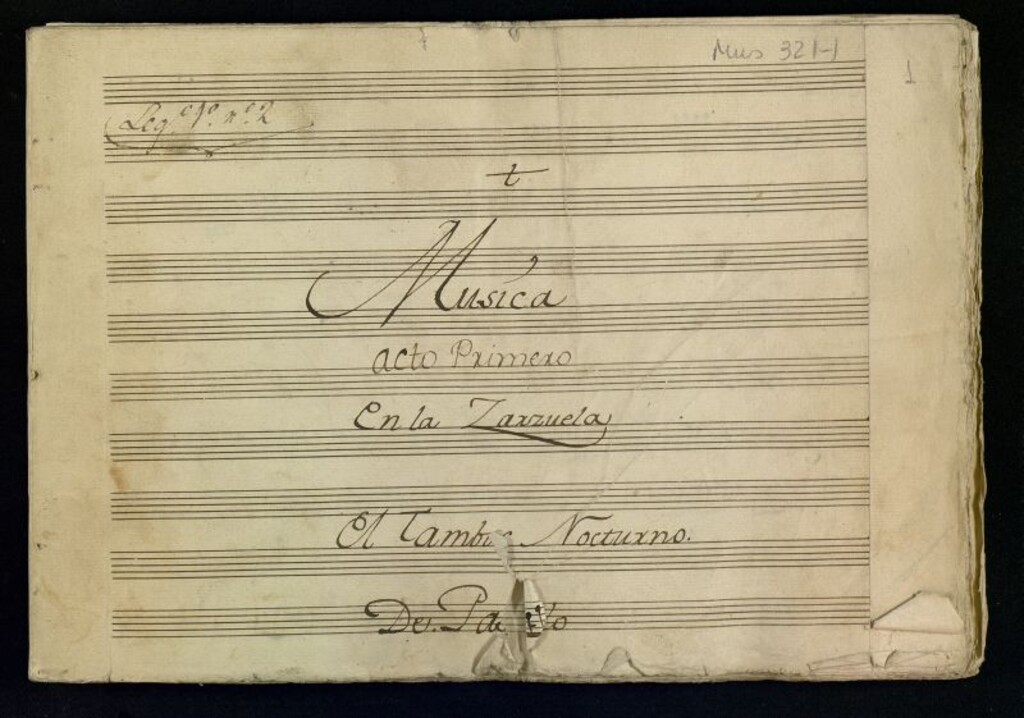 Mus 321-1
1
Leg.º 1º. nº. 2
t
Musica
acto Primero
En la Zarzuela
El Nocturno.
De